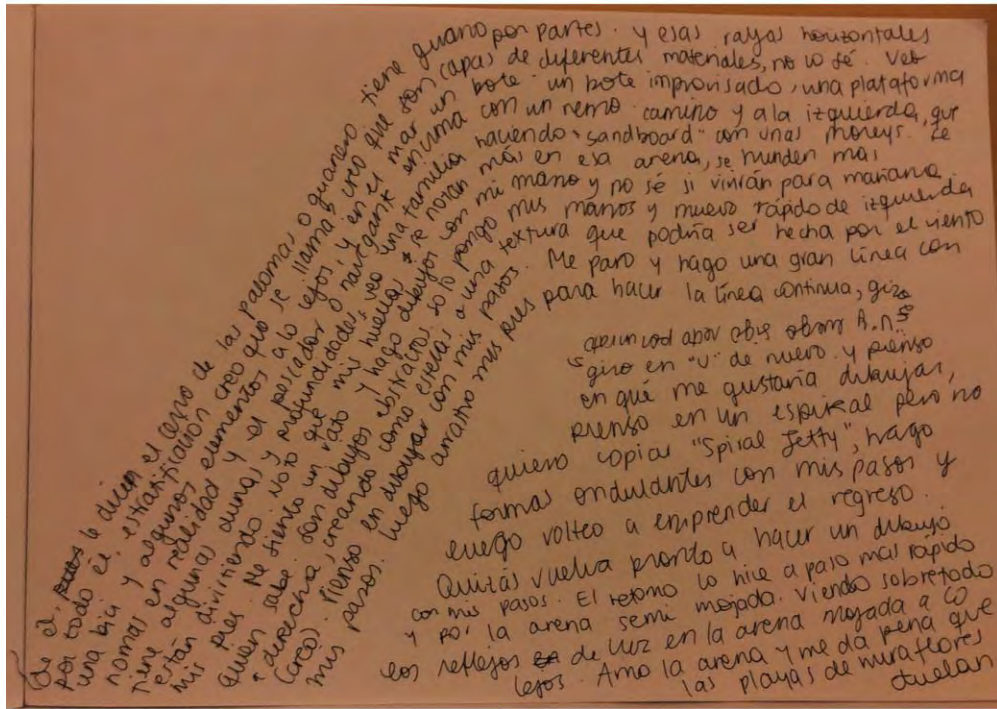 (de él, le dicen el cerro de las palomas o guanero tiene guano por partes. y esas rayas horizontales
por todo él. estratificación creo que se llama, creo que son capas de diferentes materiales, no lo sé. Veo
una bici y algunos elementos a lo lejos, y en el mar un bote un bote improvisado, una plataforma
nomas en realidad y el pescador o navegante encima con un remo. camino y a la izquierda, que
tiene algunas dunas y profundidades, veo una familia haciendo "sandboard" con unas moreys. Se
están divirtiendo. Noto que mis huellas se notan más en esa arena, se hunden mas
mis pies. Me siento un rato y hago dibujos con mi mano y no sé si vivirán para mañana.
Quien sabe. Son dibujos abstractos, solo pongo mis manos y muevo rápido de izquierda
a derecha, creando como estelas a una textura que podría ser hecha por el viento
(creo). Pienso en dibujar con mis pasos. Me paro y hago una gran línea con
mis pasos. luego arrastro mis pies para hacer la línea continua, giro
giro en "U" de nuevo y pienso
en qué me gustaría dibujar,
pienso en un espiral pero no
quiero copiar "Spiral Jetty", hago
formas ondulantes con mis pasos y
luego volteo a emprender el regreso.
Quizás vuelva pronto a hacer un dibujo
con mis pasos. El retorno lo hice a paso mas rápido
y por la arena semi mojada. Viendo sobretodo
los reflejos de luz en la arena mojada a lo
lejos. Amo la arena y me da pena que
las playas de miraflores